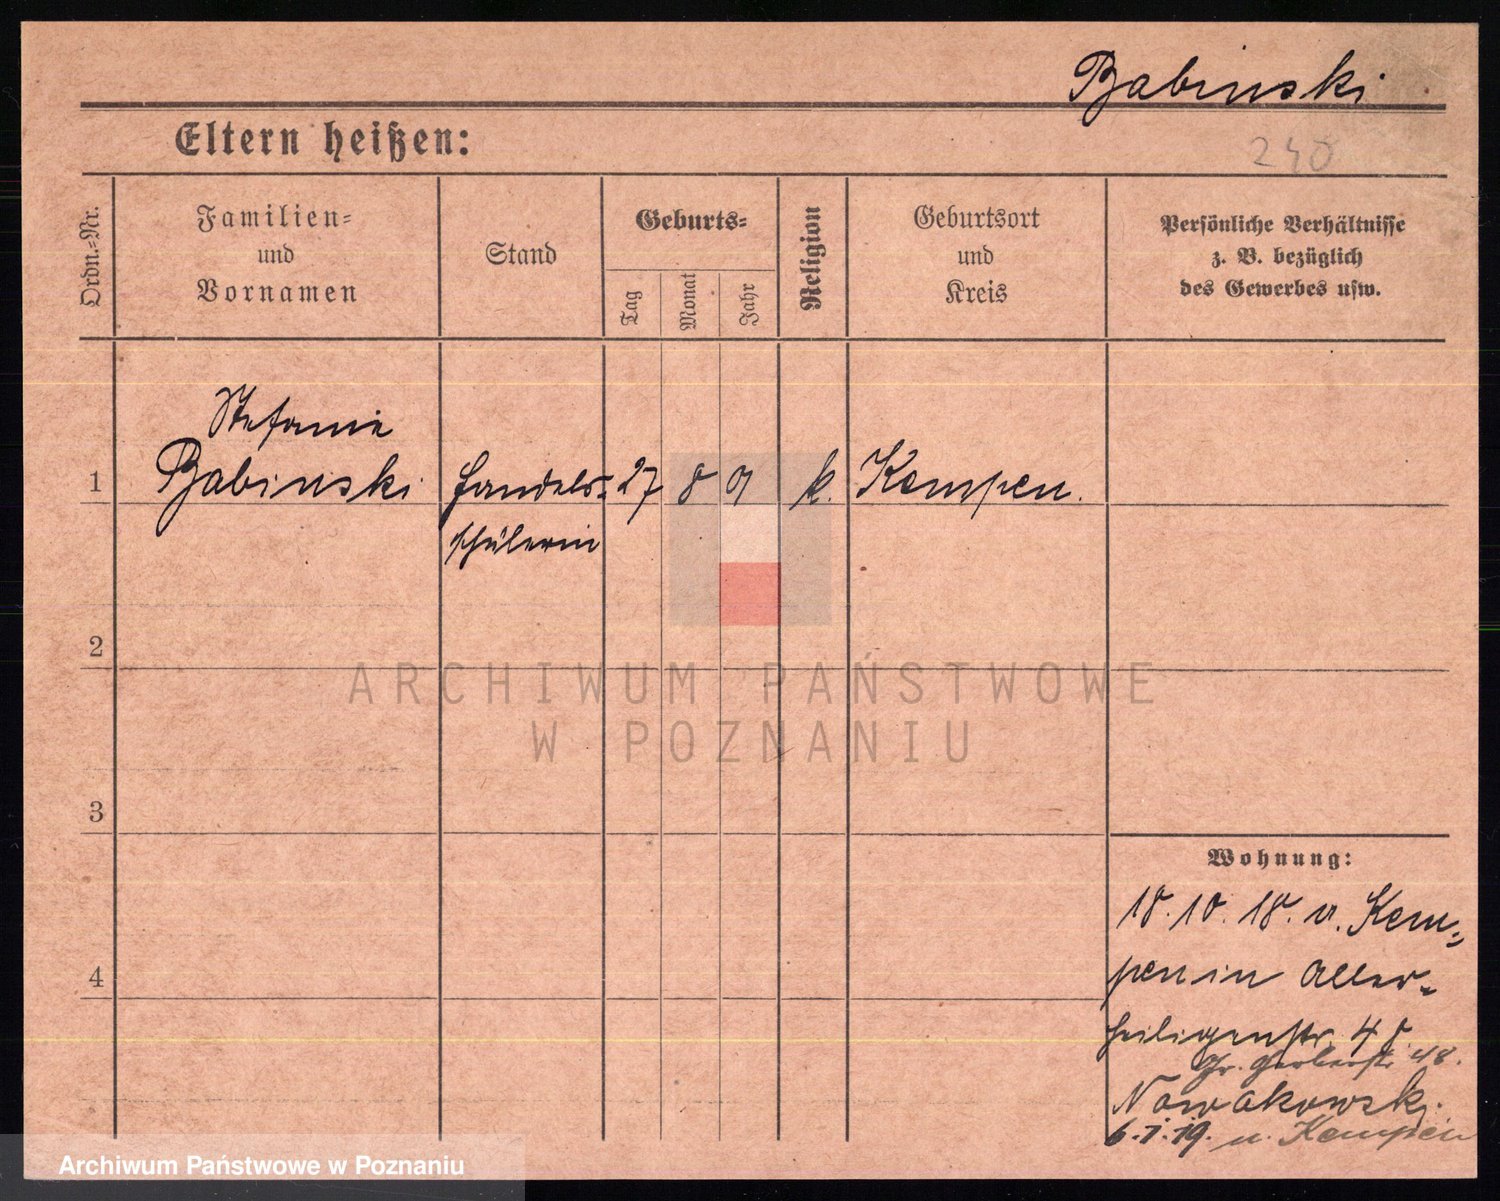 Babinski
Eltern heißen:
240
Ordn.=Nr.
Familien=
und
Vornamen
Stand
Geburts=
Tag
Monat
Jahr
Religion
Geburtsort
und
Kreis
Persönliche Verhältnisse
z. B. bezüglich
des Gewerbes usw.
Stefanie
1 Babinski Handels= 27 8 01 k. Kempen.
schülerin
2
ARCHIWUM PAŃSTWOWE
W POZNANIU
3
Wohnung:
18.10.18. v. Kem=
pen in Aller=
4
heiligenstr. 4
Gr. Gerberstr 48.
Nowakowski.
6.1.19. n. Kempen
Archiwum Państwowe w Poznaniu